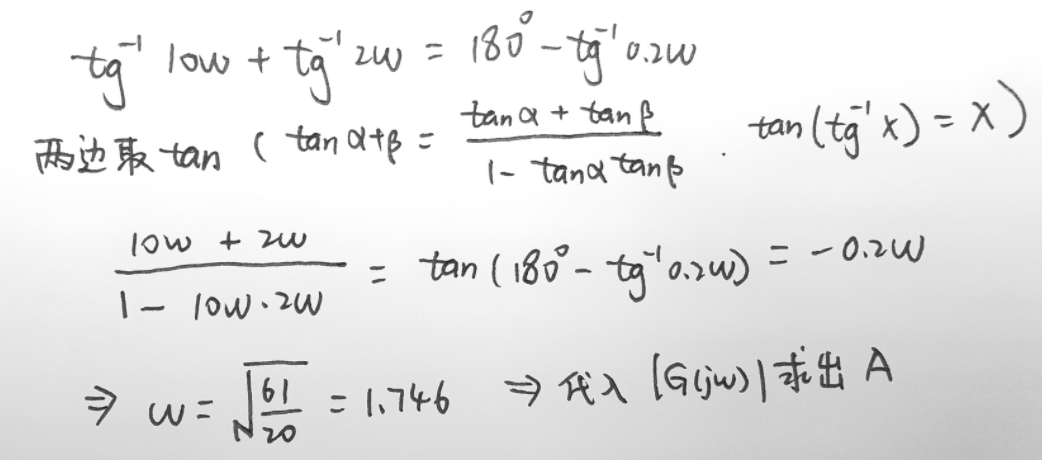 tg⁻¹ 10w + tg⁻¹ 2w = 180° - tg⁻¹ 0.2w
两边取 tan ( tan α+β = (tanα + tanβ)/(1 - tanα tanβ) . tan(tg⁻¹ x) = x )
(10w + 2w)/(1 - 10w·2w) = tan (180° - tg⁻¹ 0.2w) = -0.2w
⇒ w = √(61/20) = 1.746 ⇒ 代入 |G(jw)| 求出 A